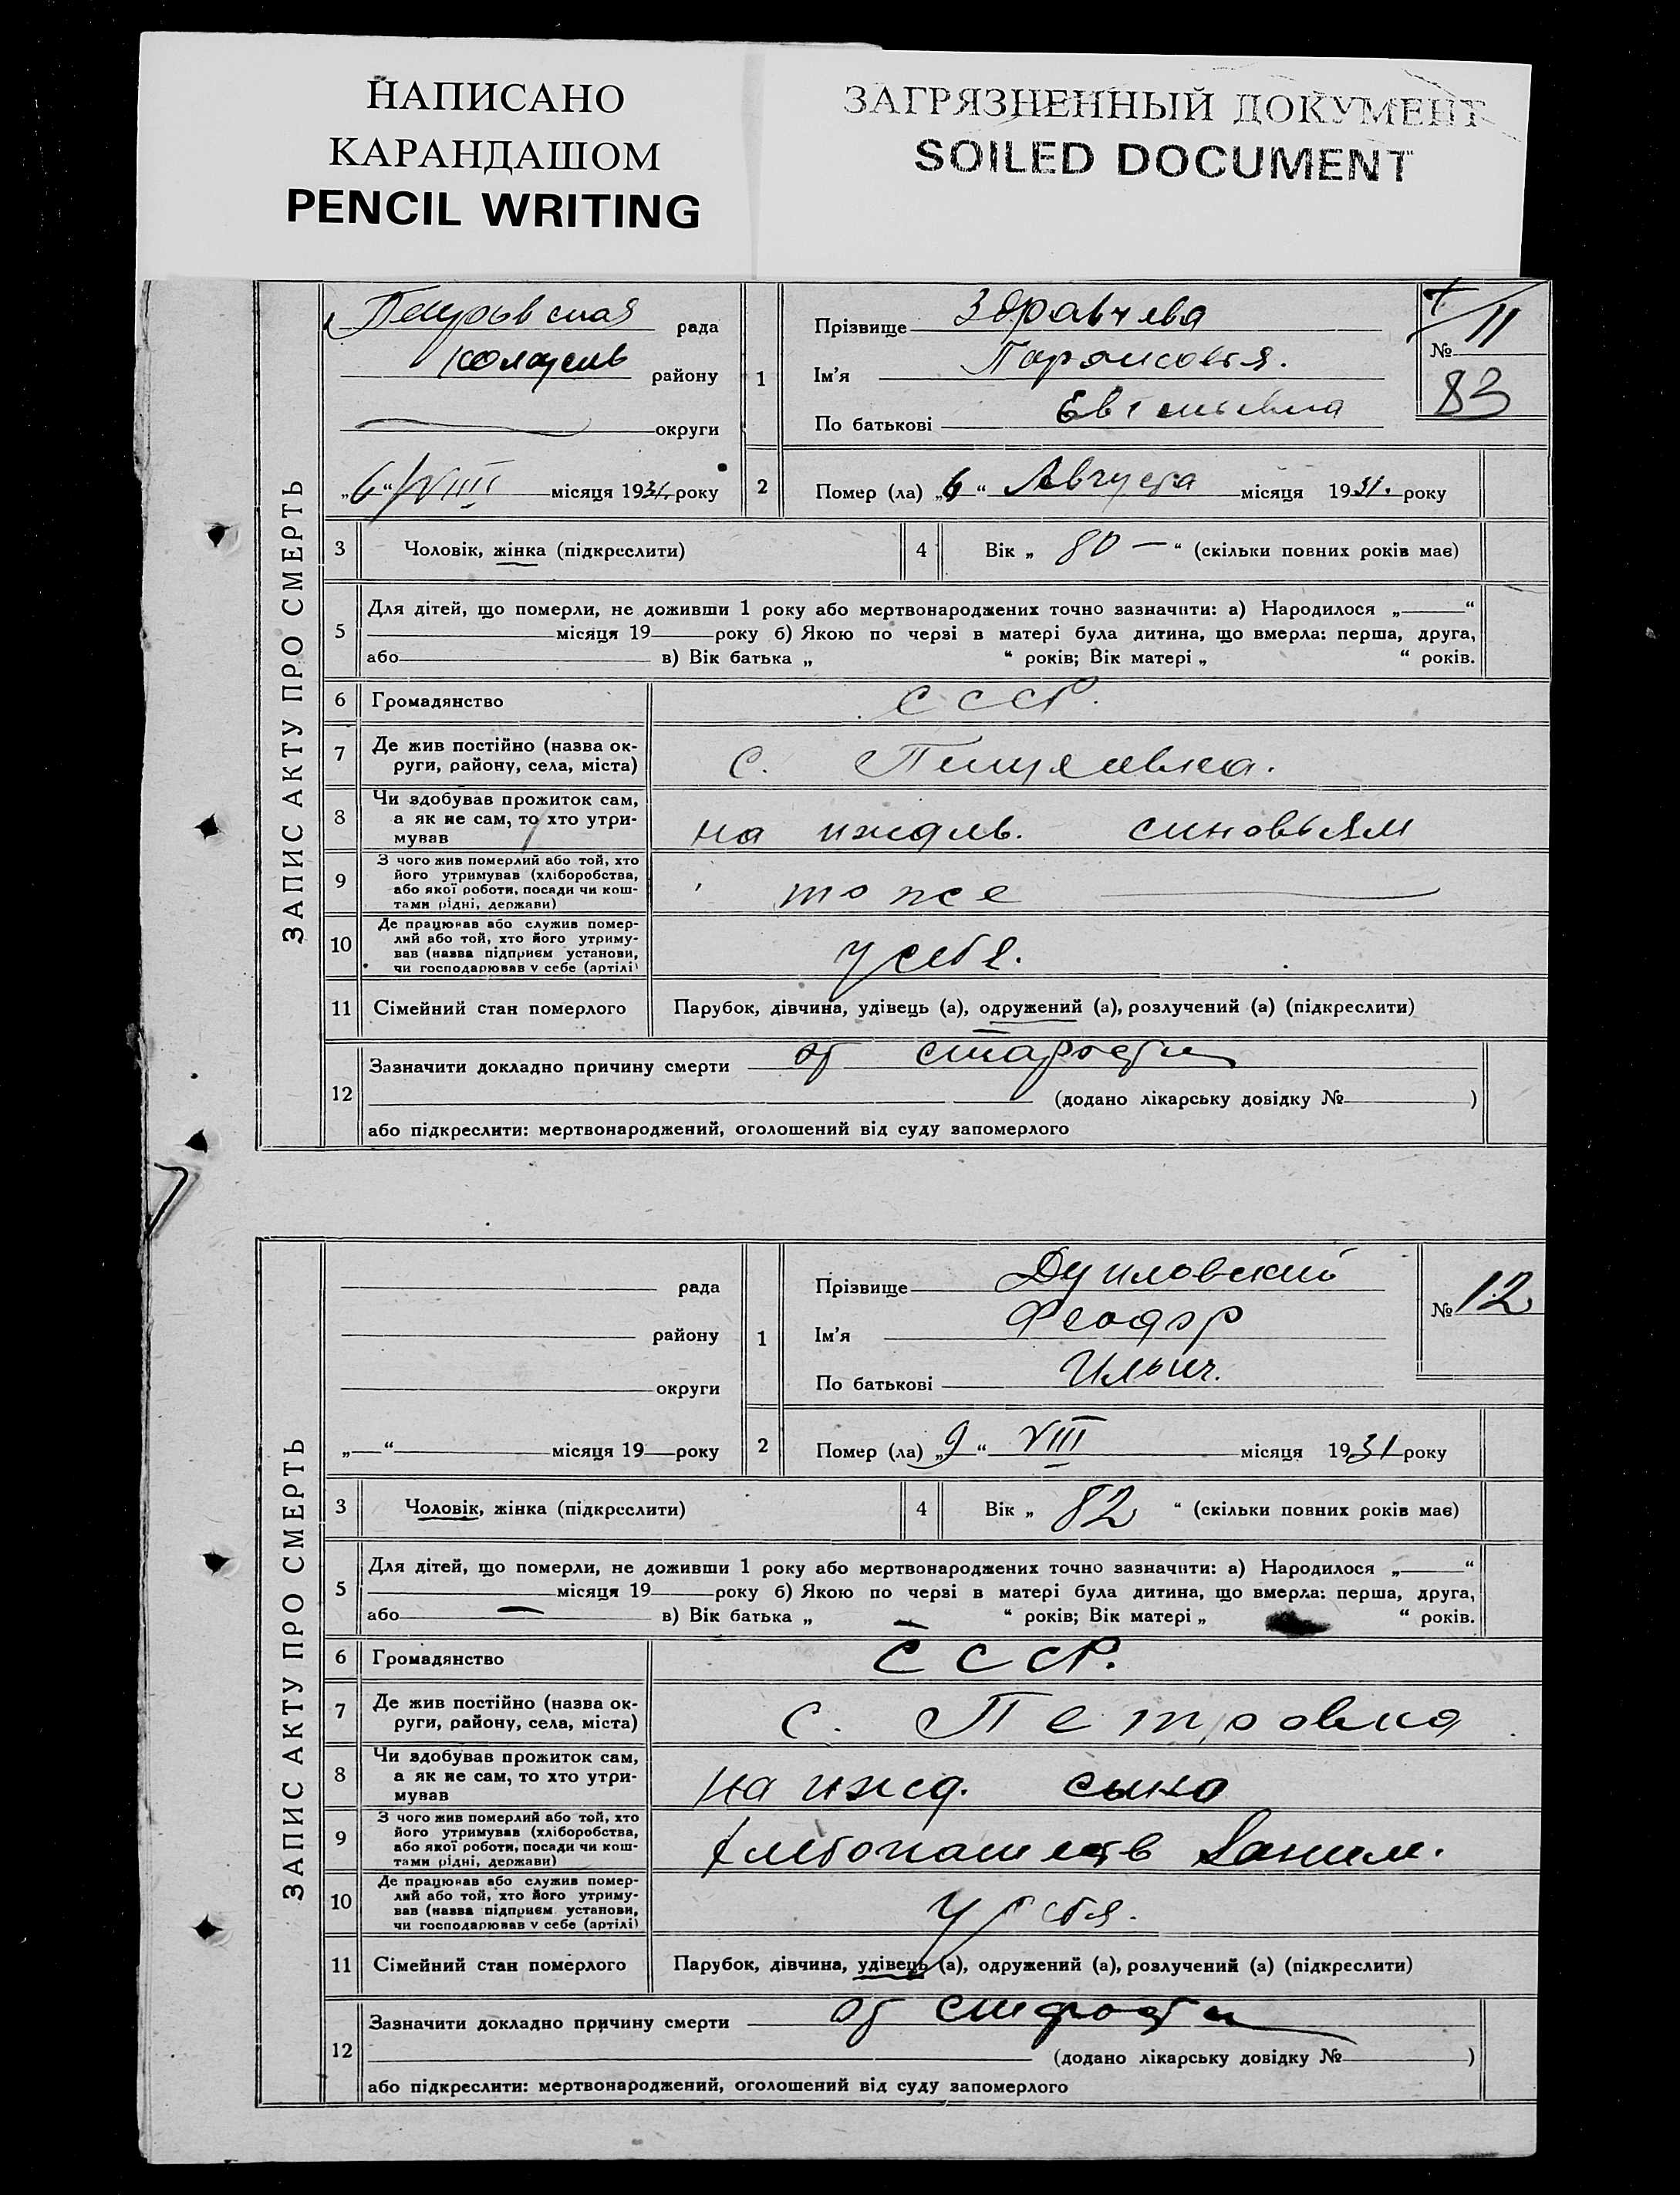 НАПИСАНО
КАРАНДАШОМ
PENCIL WRITING
ЗАГРЯЗНЕННЫЙ ДОКУМЕНТ
SOILED DOCUMENT
ЗАПИС АКТУ ПРО СМЕРТЬ
рада
району
округи
„6“ VIII місяця 1931 року
1
Прізвище
Ім'я
По батькові
№ 11
83
2 Помер (ла) „6“ Августа місяця 1931. року
3 Чоловік, жінка (підкреслити)
4 Вік „ 80 — “ (скільки повних років має)
5 Для дітей, що померли, не доживши 1 року або мертвонароджених точно зазначити: а) Народилося „ “
місяця 19 року б) Якою по черзі в матері була дитина, що вмерла: перша, друга,
або в) Вік батька „ “ років; Вік матері „ “ років.
6 Громадянство СССР.
7 Де жив постійно (назва ок-
руги, району, села, міста) с.
8 Чи здобував прожиток сам,
а як не сам, то хто утри-
мував на
9 З чого жив померлий або той, хто
його утримував (хліборобства,
або якої роботи, посади чи кош-
тами рідні, держави) тоже
10 Де працював або служив помер-
лий або той, хто його утриму-
вав (назва підприєм установи,
чи господарював у себе (артілі) у себя.
11 Сімейний стан померлого Парубок, дівчина, удівець (а), одружений (а), розлучений (а) (підкреслити)
12 Зазначити докладно причину смерти от старости
(додано лікарську довідку № )
або підкреслити: мертвонароджений, оголошений від суду запомерлого
ЗАПИС АКТУ ПРО СМЕРТЬ
рада
району
округи
„ “ місяця 19 року
1
Прізвище
Ім'я Феодор
По батькові Ильич.
№ 12
2 Помер (ла) „9“ VIII місяця 1931 року
3 Чоловік, жінка (підкреслити)
4 Вік „ 82 “ (скільки повних років має)
5 Для дітей, що померли, не доживши 1 року або мертвонароджених точно зазначити: а) Народилося „ “
місяця 19 року б) Якою по черзі в матері була дитина, що вмерла: перша, друга,
або — в) Вік батька „ “ років; Вік матері „ “ років.
6 Громадянство СССР.
7 Де жив постійно (назва ок-
руги, району, села, міста) с. Петровка
8 Чи здобував прожиток сам,
а як не сам, то хто утри-
мував на ижд. сына
9 З чого жив померлий або той, хто
його утримував (хліборобства,
або якої роботи, посади чи кош-
тами рідні, держави)
10 Де працював або служив помер-
лий або той, хто його утриму-
вав (назва підприєм установи,
чи господарював у себе (артілі) у себя.
11 Сімейний стан померлого Парубок, дівчина, удівець (а), одружений (а), розлучений (а) (підкреслити)
12 Зазначити докладно причину смерти от старости
(додано лікарську довідку № )
або підкреслити: мертвонароджений, оголошений від суду запомерлого